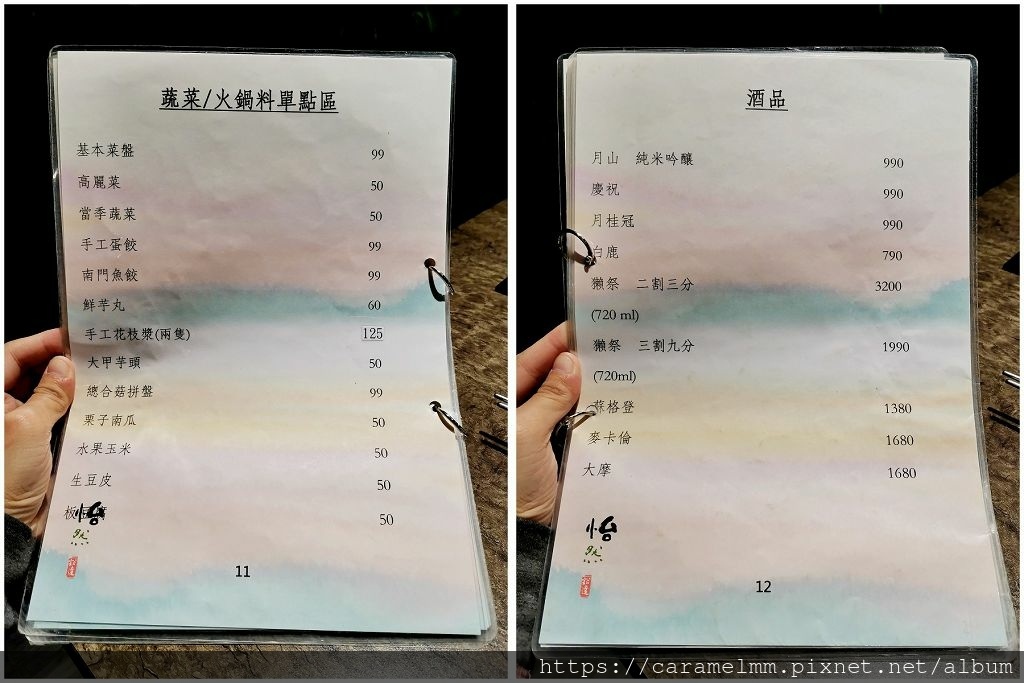 蔬菜/火鍋料單點區
基本菜盤 99
高麗菜 50
當季蔬菜 50
手工蛋餃 99
南門魚餃 99
鮮芋丸 60
手工花枝漿(兩隻) 125
大甲芋頭 50
總合菇拼盤 99
栗子南瓜 50
水果玉米 50
生豆皮 50
板豆腐 50
怡
然
11
酒品
月山 純米吟釀 990
慶祝 990
月桂冠 990
白鹿 790
獺祭 二割三分 3200
(720 ml)
獺祭 三割九分 1990
(720ml)
蘇格登 1380
麥卡倫 1680
大摩 1680
怡
然
12
https://caramelmm.pixnet.net/album